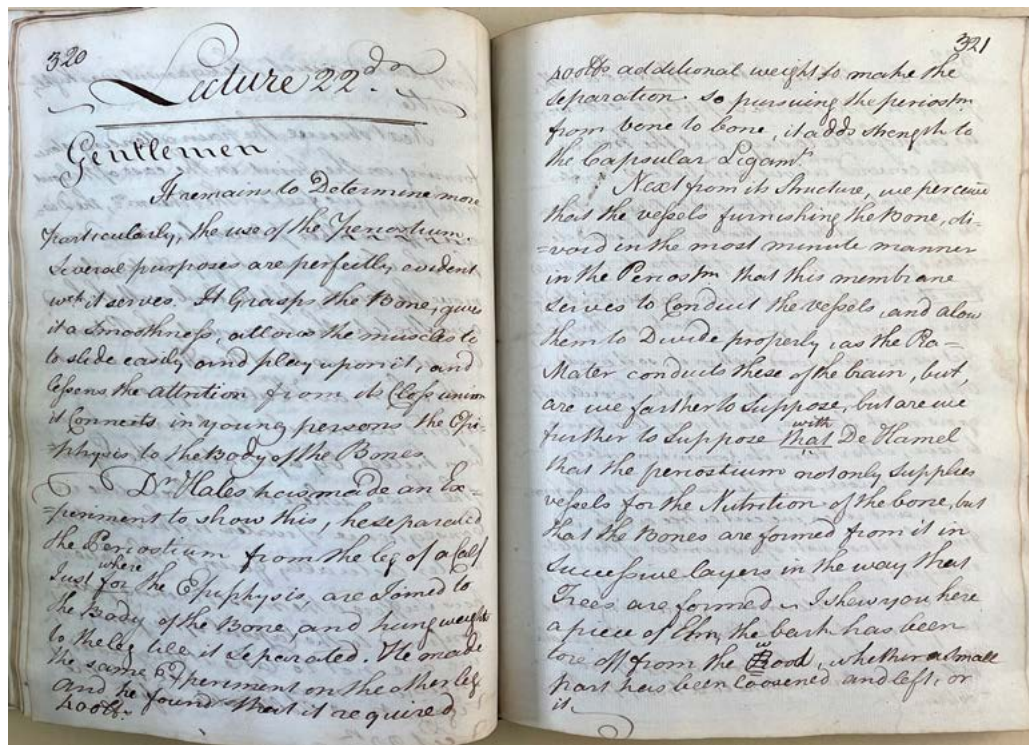 320
Lecture 22d.
Gentlemen
It remains to Determine more
particularly, the use of the Periostium.
Several purposes are perfectly evident
wch. it serves. It Grasps the Bone, gives
it a Smoothness, allows the muscles to
to slide easily and play upon it, and
lessens the attrition from its Close union
it Connects in young persons the Epi-
=physis to the Body of the Bones
Dr. Hales has made an Ex-
=periment to show this, he separated
the Periostium from the leg of a Calf
where
Just for the Epiphysis, are Joined to
the Body of the Bone, and hung weights
to the leg till it Separated. He made
the same Experiment on the other leg
and he found that it required
400lb.
321
400lbs additional weight to make the
separation. So pursuing the periostm
from bone to bone, it adds strength to
the Capsular Ligamt.
Next from its Structure, we perceive
that the vessels furnishing the Bone, di-
=void in the most minute manner
in the Periostm that this membrane
serves to Conduct the vessels, and alow
them to Divide properly, as the Pia-
Mater conducts these of the brain, but,
are we farther to suppose, but are we
with
further to Suppose that De Hamel
that the periostium not only supplies
vessels for the Nutrition of the bone, but
that the Bones are formed from it in
successive layers in the way that
Trees are formed. I shew you here
a piece of Elm, the bark has been
w
tore off from the Bood, whether a small
part has been loosened and left, or
it.